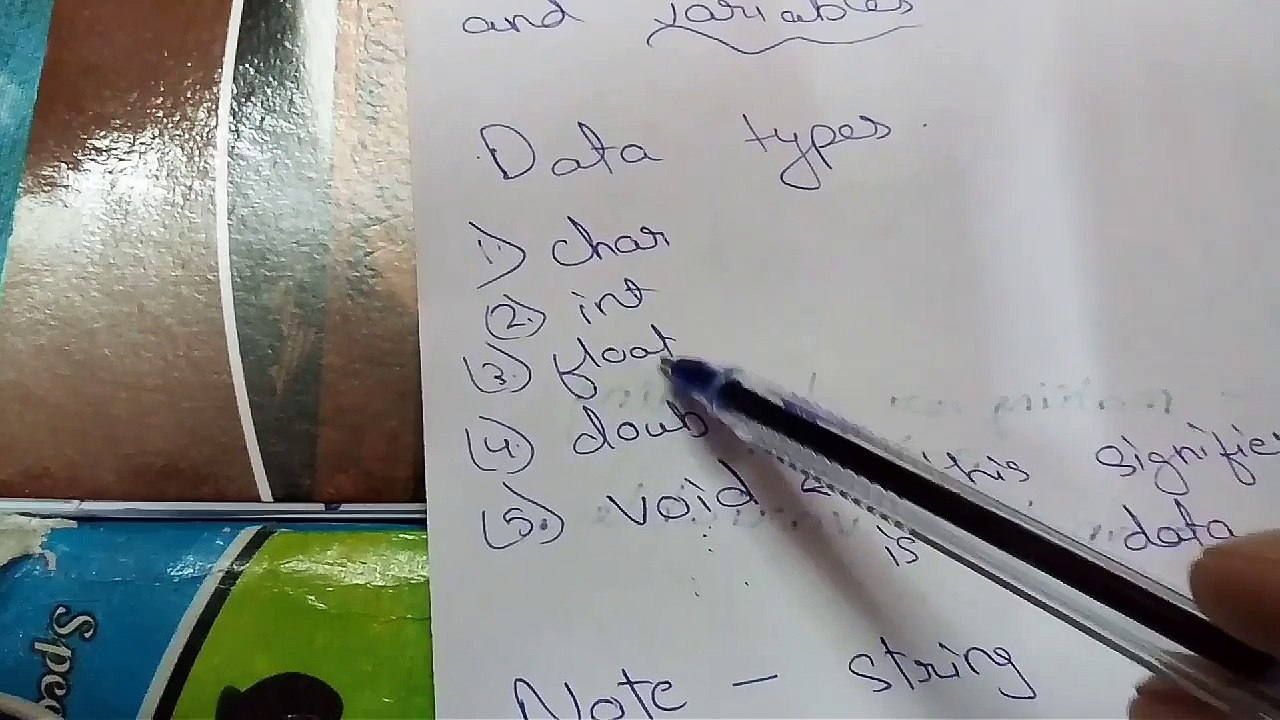 and variables
Data types.
1) char
(2) int
(3) float
(4) doub
(5) void this signifie
is data
Note - string
Spec